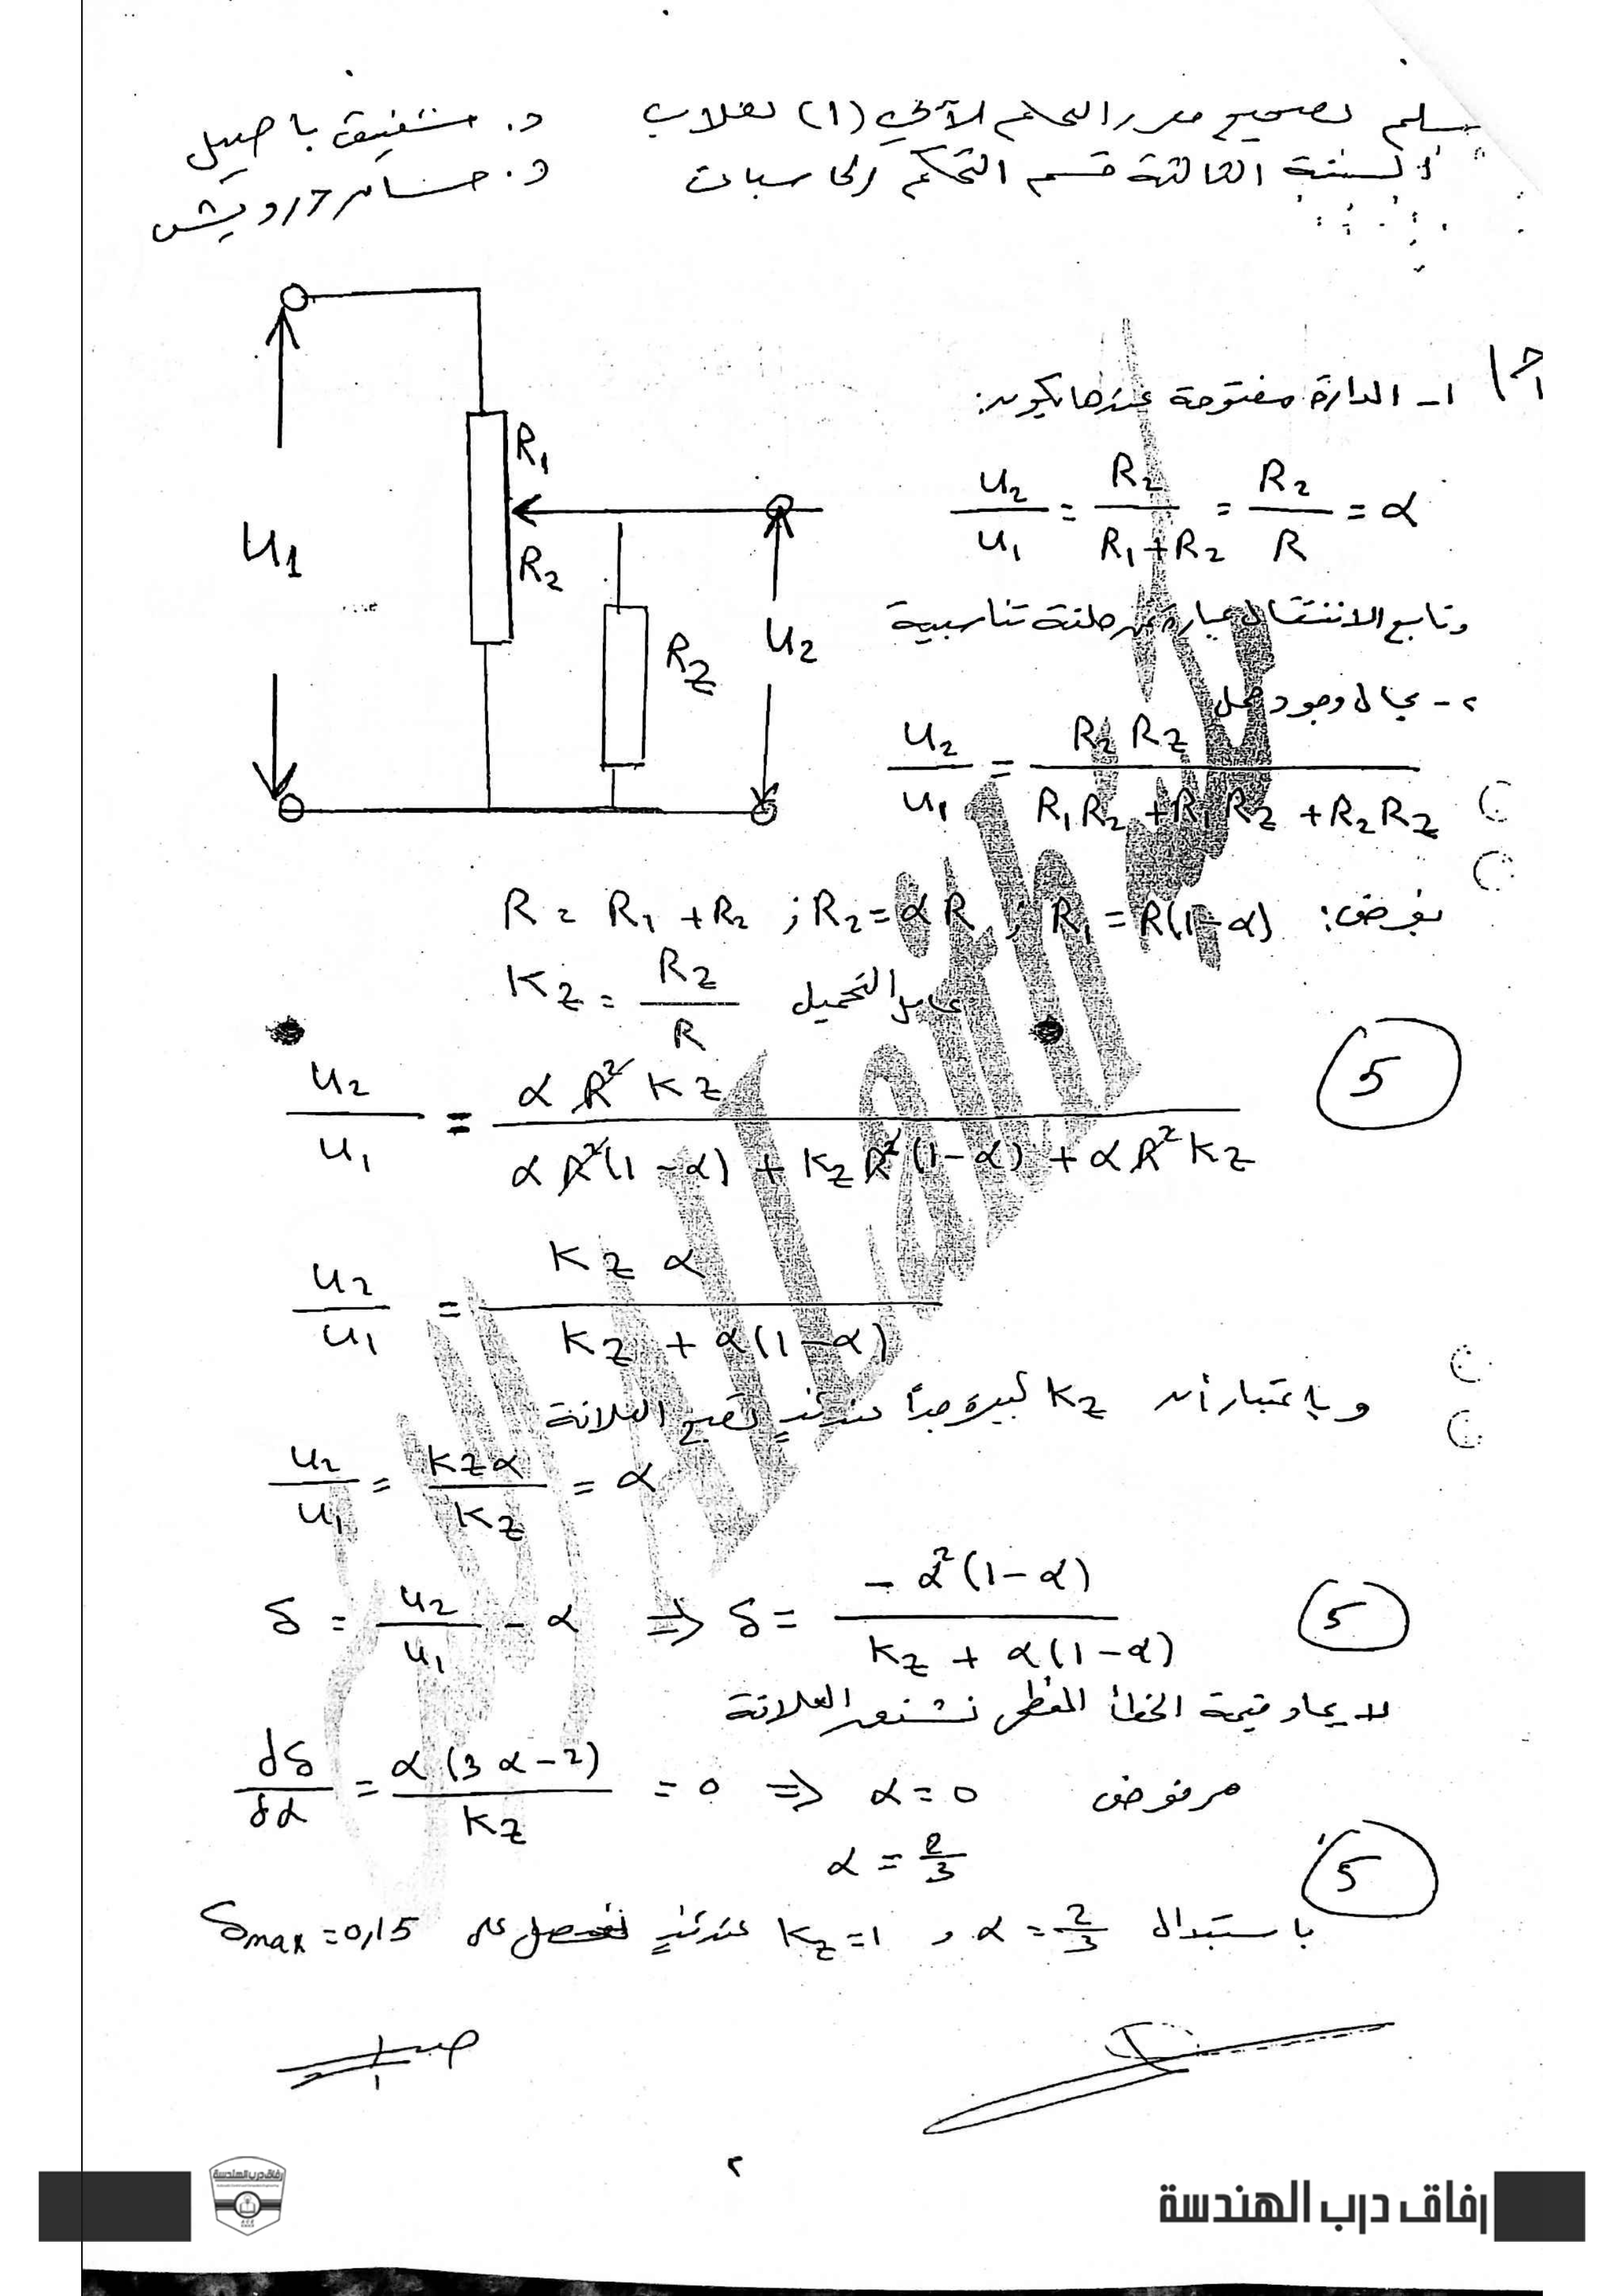 سلم تصحيح مقرر التحكم الآلي (1) لطلاب
السنة الثالثة قسم التحكم والحاسبات
د. شفيق باصيل
د. حسام درويش
ج1
1- الدارة مفتوحة عندها يكون:
U₂/U₁ = R₂/(R₁+R₂) = R₂/R = α
وتابع الانتقال عبارة عن حلقة تناسبية
U₁
R₁
R₂
R_Z
U₂
٢- بحال وجود حمل
U₂/U₁ = R₂ R_Z/(R₁R₂ + R₁R_Z + R₂R_Z)
بفرض: R = R₁ + R₂ ; R₂ = αR ; R₁ = R(1-α)
K_Z = R_Z/R عامل التحميل
5
U₂/U₁ = α R² K_Z/(α R²(1-α) + K_Z R²(1-α) + α R² K_Z)
U₂/U₁ = K_Z α/(K_Z + α(1-α))
وباعتبار أن K_Z كبيرة جداً عندئذٍ تصبح العلاقة
U₂/U₁ = K_Z α/K_Z = α
δ = U₂/U₁ - α ⇒ δ = -α²(1-α)/(K_Z + α(1-α))
5
لإيجاد قيمة الخطأ العظمى نشتق العلاقة
dδ/dα = α(3α-2)/K_Z = 0 ⇒ α = 0 مرفوض
α = 2/3
5
باستبدال α = 2/3 و K_Z = 1 عندئذٍ نحصل على δmax = 0,15
٢
رفاق درب الهندسة